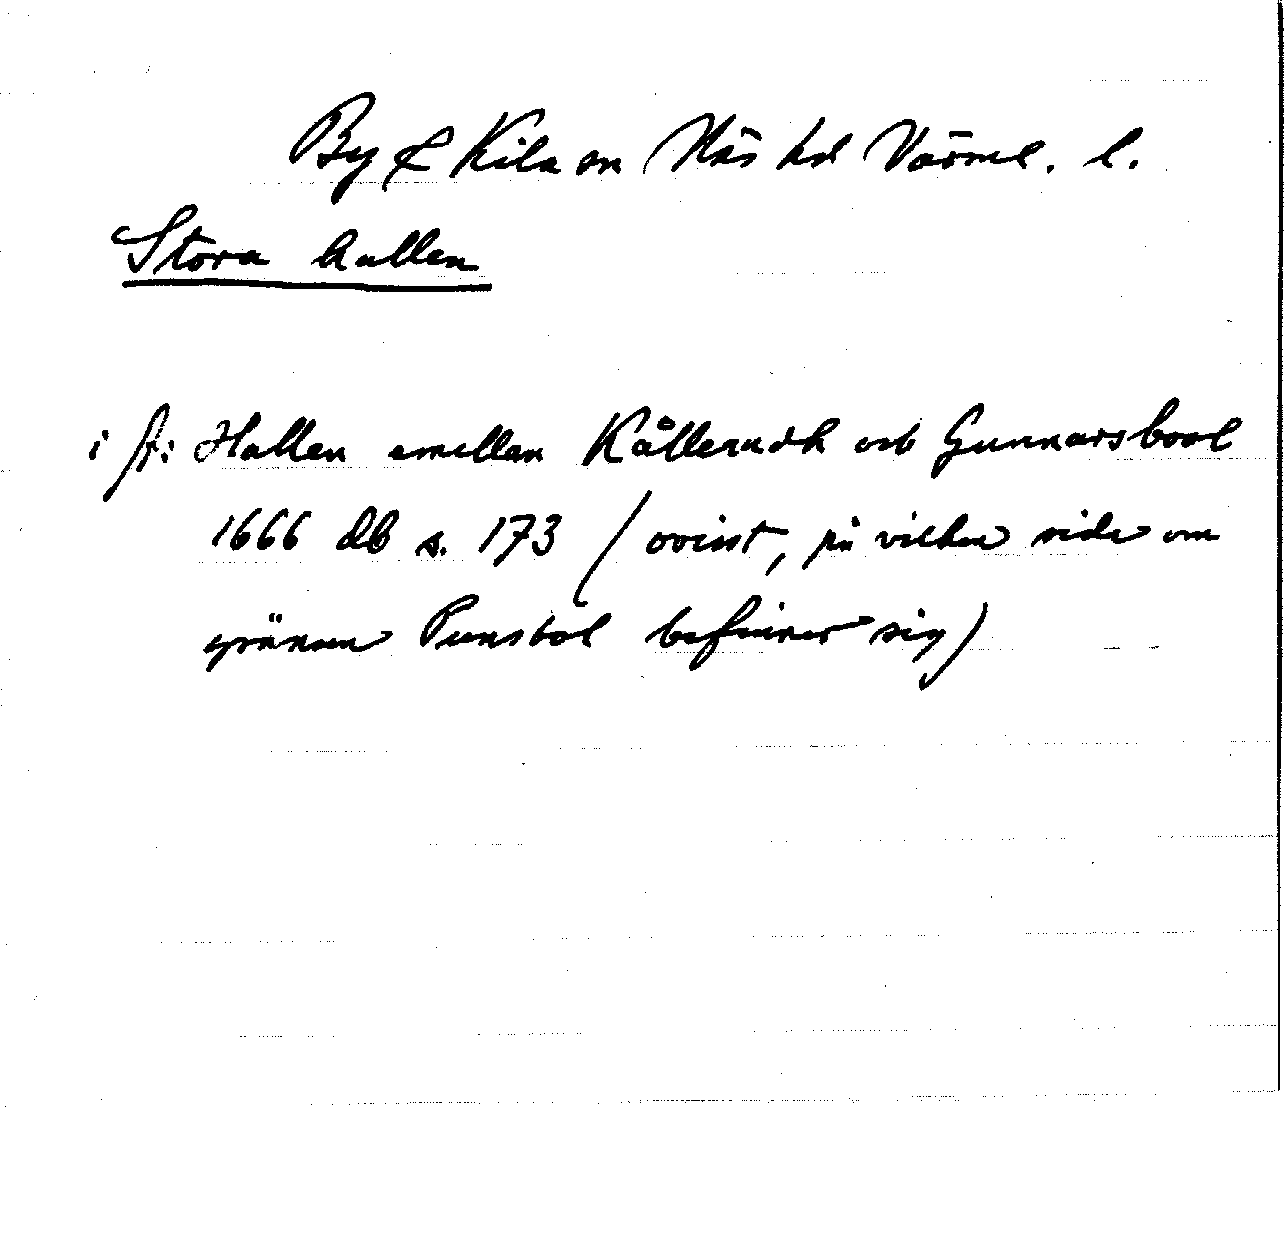 By & Kila sn Näs hd Värml. l.
Stora hallen
i fr: Hallen emellan Källerudh och Gunnarsbool
1666 db s. 173 (ovisst, på vilken sida om
gränsen Punsbol befinner sig)